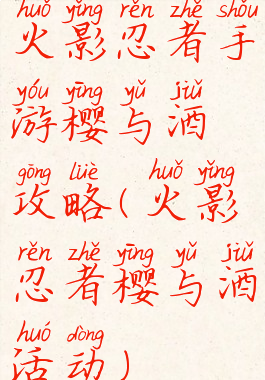 huǒ yǐng rěn zhě shǒu
火影忍者手
yóu yīng yǔ jiǔ
游樱与酒
gōng lüè huǒ yǐng
攻略(火影
rěn zhě yīng yǔ jiǔ
忍者樱与酒
huó dòng
活动)